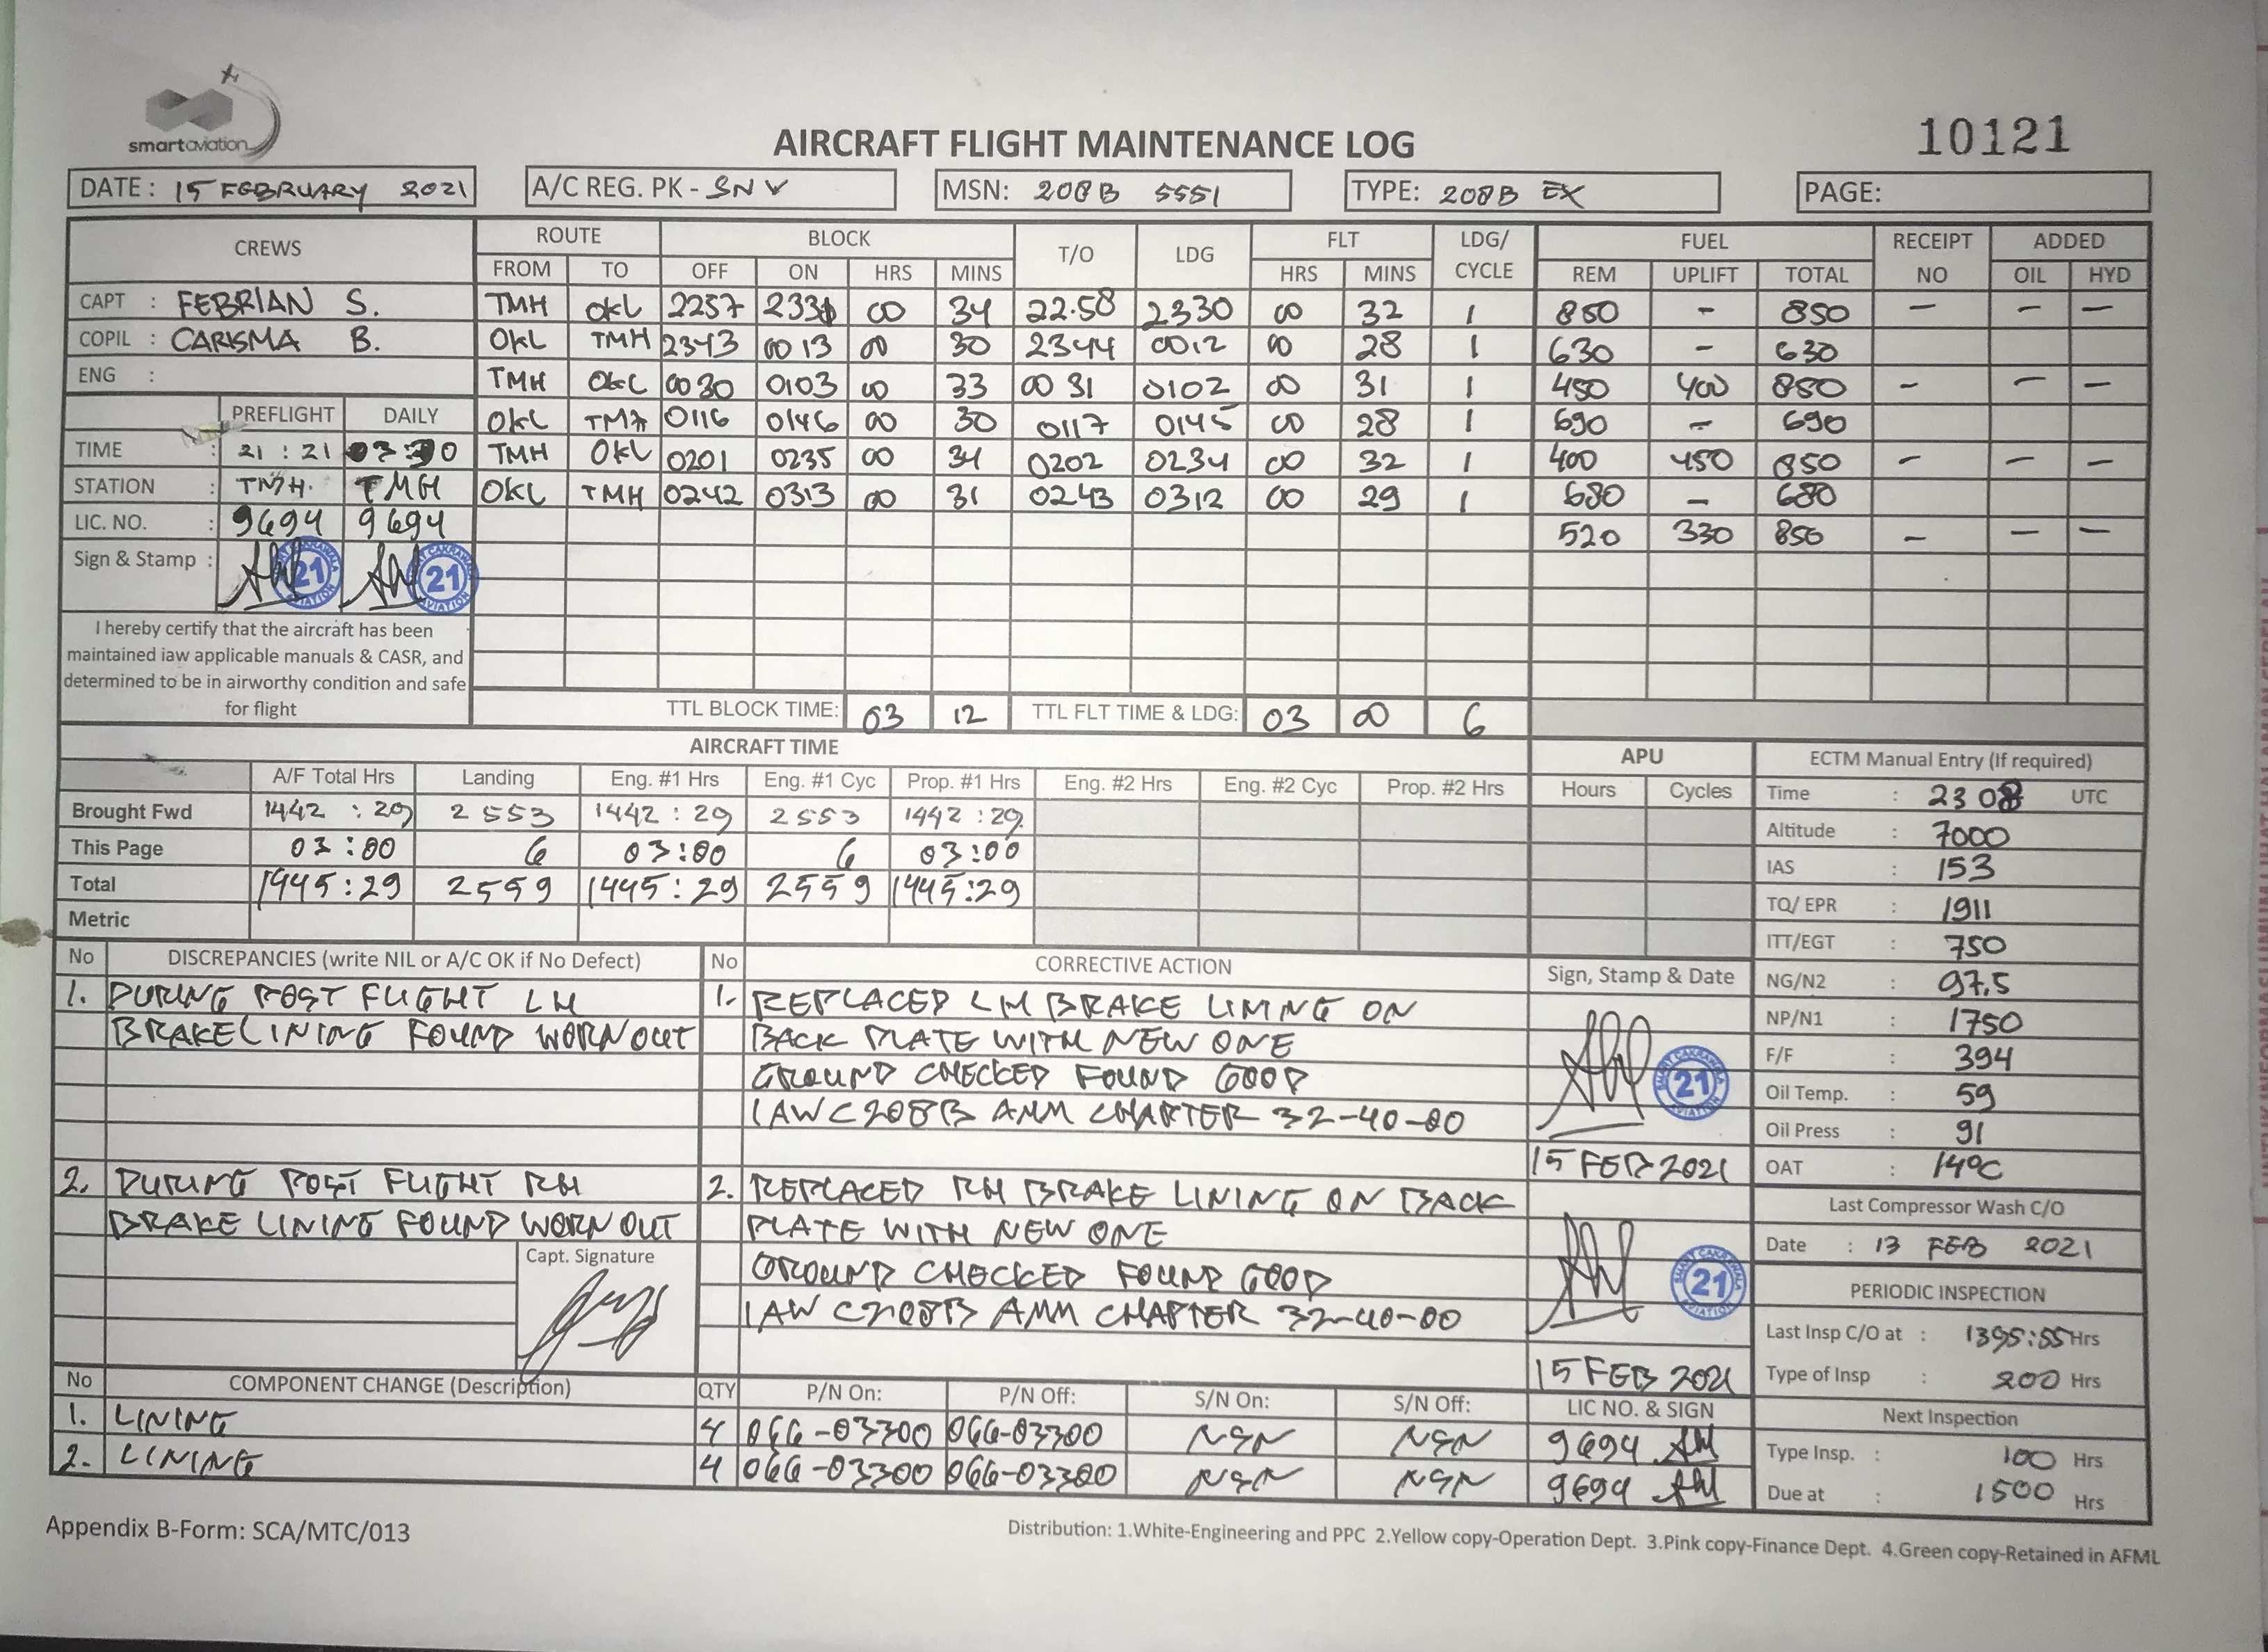 smartaviation
AIRCRAFT FLIGHT MAINTENANCE LOG
10121
DATE : 15 FEBRUARY 2021
A/C REG. PK - SNV
MSN: 208B 5551
TYPE: 208B EX
PAGE:
CREWS ROUTE BLOCK T/O LDG FLT LDG/ CYCLE FUEL RECEIPT NO ADDED
FROM TO OFF ON HRS MINS HRS MINS REM UPLIFT TOTAL OIL HYD
CAPT : FEBRIAN S. TMH OKL 2257 2331 00 34 22.58 2330 00 32 1 850 - 850 - - -
COPIL : CARISMA B. OKL TMH 2343 0013 00 30 2344 0012 00 28 1 630 - 630
ENG : TMH OKL 0030 0103 00 33 0031 0102 00 31 1 450 400 850 - - -
PREFLIGHT DAILY OKL TMH 0116 0146 00 30 0117 0145 00 28 1 690 - 690
TIME : 21 : 21 03:30 TMH OKL 0201 0235 00 34 0202 0234 00 32 1 400 450 850 - - -
STATION : TMH. TMH OKL TMH 0242 0313 00 31 0243 0312 00 29 1 680 - 680
LIC. NO. : 9694 9694 520 330 850 - - -
Sign & Stamp : 21 21
I hereby certify that the aircraft has been
maintained iaw applicable manuals & CASR, and
determined to be in airworthy condition and safe
for flight
TTL BLOCK TIME: 03 12 TTL FLT TIME & LDG: 03 00 6
AIRCRAFT TIME APU
A/F Total Hrs Landing Eng. #1 Hrs Eng. #1 Cyc Prop. #1 Hrs Eng. #2 Hrs Eng. #2 Cyc Prop. #2 Hrs Hours Cycles
Brought Fwd 1442 : 29 2553 1442 : 29 2553 1442 : 29
This Page 03 : 00 6 03 : 00 6 03 : 00
Total 1445 : 29 2559 1445 : 29 2559 1445 : 29
Metric
ECTM Manual Entry (If required)
Time : 2308 UTC
Altitude : 7000
IAS : 153
TQ/ EPR : 1911
ITT/EGT : 750
NG/N2 : 97.5
NP/N1 : 1750
F/F : 394
Oil Temp. : 59
Oil Press : 91
OAT : 14°C
Last Compressor Wash C/O
Date : 13 FEB 2021
PERIODIC INSPECTION
Last Insp C/O at : 1395:55 Hrs
Type of Insp : 200 Hrs
Next Inspection
Type Insp. : 100 Hrs
Due at : 1500 Hrs
No DISCREPANCIES (write NIL or A/C OK if No Defect)
1. DURING POST FLIGHT LH
BRAKE LINING FOUND WORN OUT
2. DURING POST FLIGHT RH
BRAKE LINING FOUND WORN OUT
Capt. Signature
No CORRECTIVE ACTION
1. REPLACED LH BRAKE LINING ON
BACK PLATE WITH NEW ONE
GROUND CHECKED FOUND GOOD
IAW C208B AMM CHAPTER 32-40-00
2. REPLACED RH BRAKE LINING ON BACK
PLATE WITH NEW ONE
GROUND CHECKED FOUND GOOD
IAW C208B AMM CHAPTER 32-40-00
Sign, Stamp & Date
21
15 FEB 2021
21
15 FEB 2021
No COMPONENT CHANGE (Description) QTY P/N On: P/N Off: S/N On: S/N Off: LIC NO. & SIGN
1. LINING 4 066-03300 066-03300 NSN NSN 9694
2. LINING 4 066-03300 066-03300 NSN NSN 9694
Appendix B-Form: SCA/MTC/013
Distribution: 1.White-Engineering and PPC 2.Yellow copy-Operation Dept. 3.Pink copy-Finance Dept. 4.Green copy-Retained in AFML